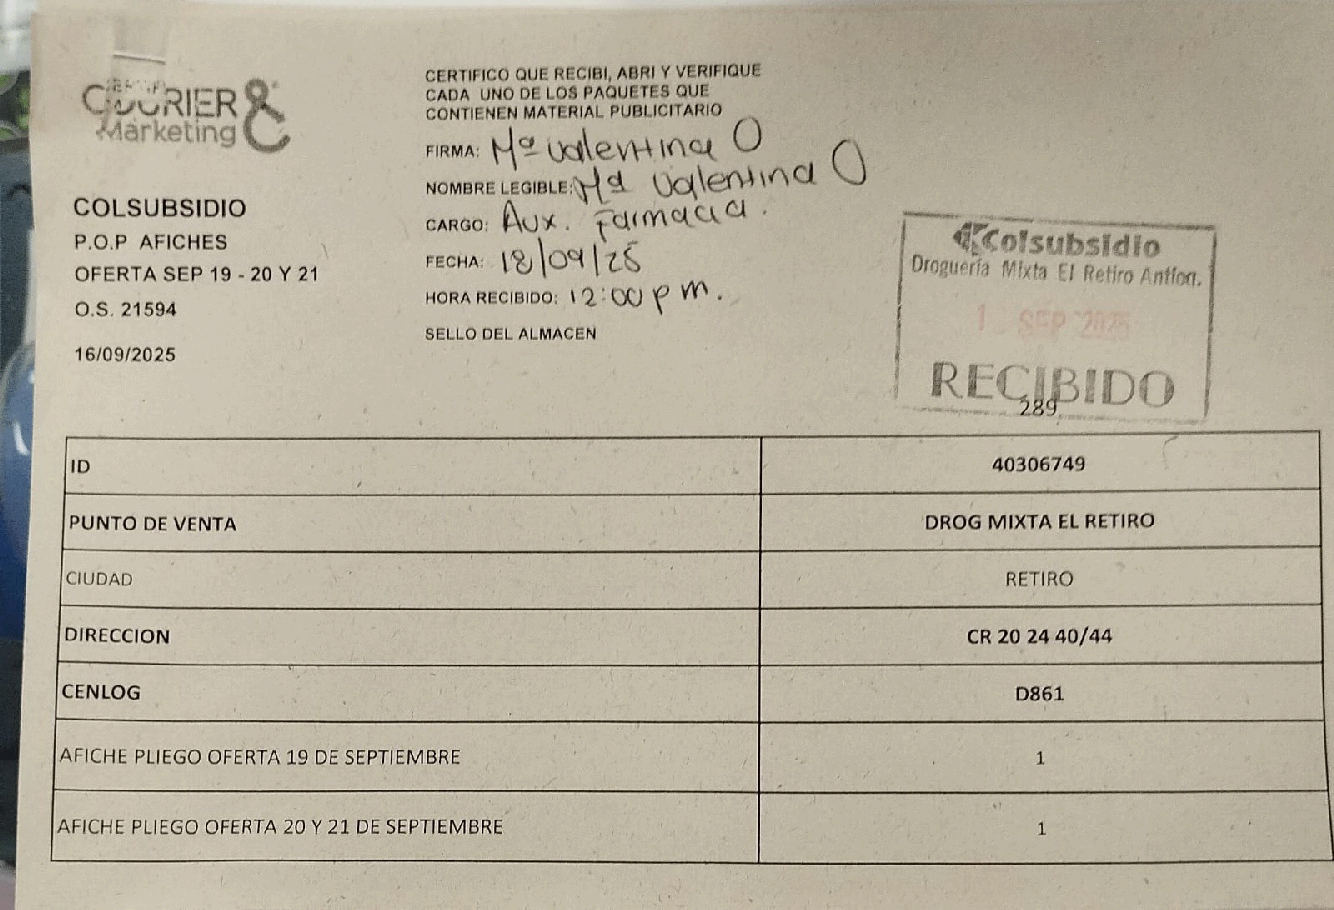 COURIER &
Marketing
COLSUBSIDIO
P.O.P AFICHES
OFERTA SEP 19 - 20 Y 21
O.S. 21594
16/09/2025
CERTIFICO QUE RECIBI, ABRI Y VERIFIQUE
CADA UNO DE LOS PAQUETES QUE
CONTIENEN MATERIAL PUBLICITARIO
FIRMA: Mª Valentina O
NOMBRE LEGIBLE: Mª Valentina O
CARGO: Aux. Farmacia.
FECHA: 18/09/25
HORA RECIBIDO: 12:00 pm.
SELLO DEL ALMACEN
Colsubsidio
Droguería Mixta El Retiro Antioq.
SEP 2025
RECIBIDO
289
ID 40306749
PUNTO DE VENTA DROG MIXTA EL RETIRO
CIUDAD RETIRO
DIRECCION CR 20 24 40/44
CENLOG D861
AFICHE PLIEGO OFERTA 19 DE SEPTIEMBRE 1
AFICHE PLIEGO OFERTA 20 Y 21 DE SEPTIEMBRE 1